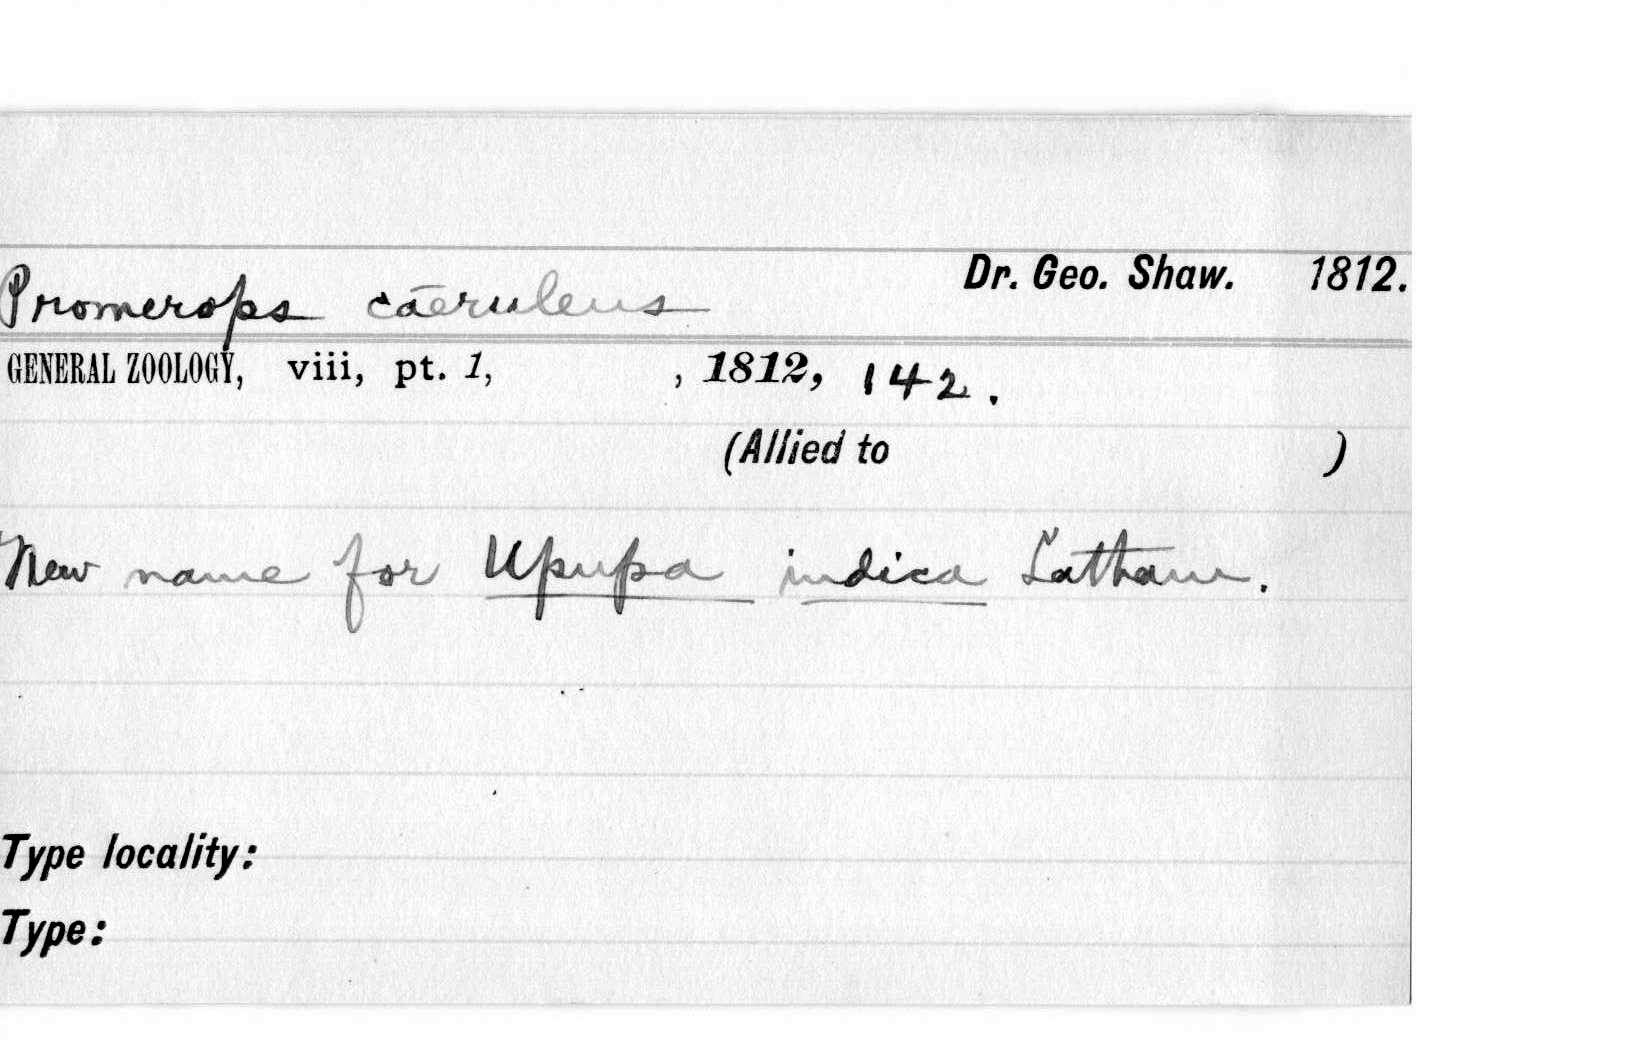 Promerops caeruleus Dr. Geo. Shaw. 1812.
GENERAL ZOOLOGY, viii, pt. 1, , 1812, 142.
(Allied to )
New name for Upupa indica Latham.
Type locality:
Type: